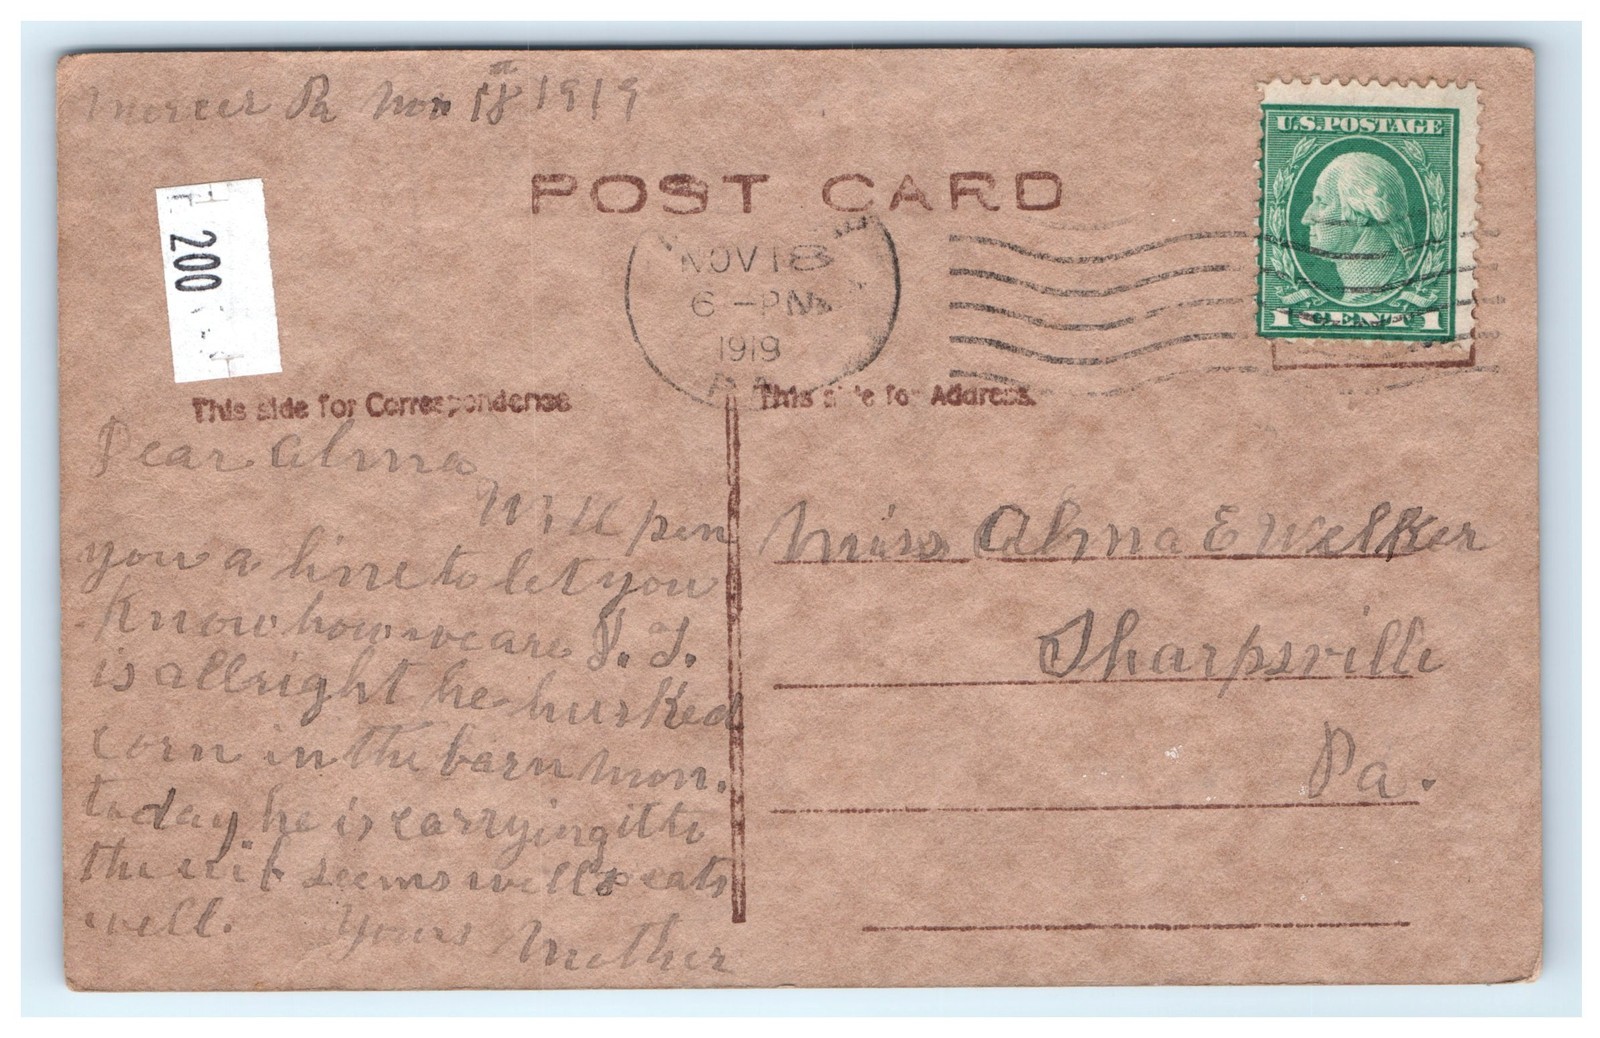 Mercer Pa Nov 18 1919
200
POST CARD
U.S.POSTAGE
1 CENT 1
NOV 18
6 - PM
1919
PA
This side for Correspondense
This side for Address.
Dear Alma
Will pen
you a line to let you
Know how we are
is allright he husked
corn in the barn mon.
today he is carrying it to
the crib seems well & eats
well. Yours Mother
Miss Alma E Welker
Sharpsville
Pa.